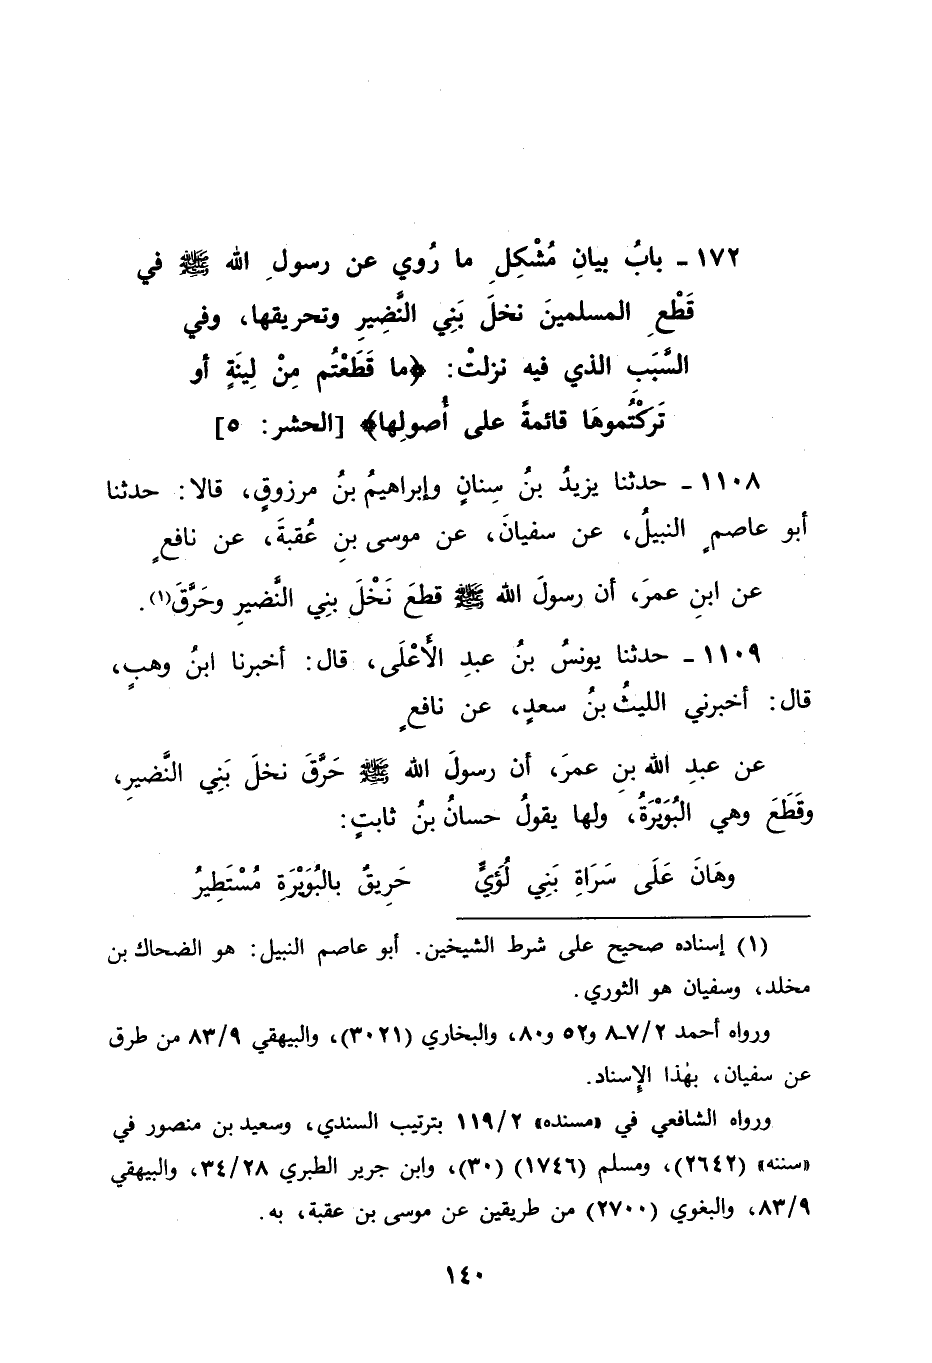 ١٧٢ ـ بابُ بيانِ مُشْكِلِ ما رُوي عن رسولِ الله ﷺ في
قَطْعِ المسلمينَ نخلَ بَنِي النَّضِيرِ وتحريقها، وفي
السَّبَبِ الذي فيه نزلتْ: ﴿ما قَطَعْتُم مِنْ لِينَةٍ أو
تَرَكْتُموهَا قائمةً على أُصولِها﴾ [الحشر: ٥]
١١٠٨ ـ حدثنا يزيدُ بنُ سِنانٍ وإبراهيمُ بنُ مرزوقٍ، قالا: حدثنا
أبو عاصمٍ النبيلُ، عن سفيانَ، عن موسى بنِ عُقبةَ، عن نافعٍ
عن ابنِ عمرَ، أن رسولَ الله ﷺ قطعَ نَخْلَ بنِي النَّضيرِ وحَرَّقَ(١).
١١٠٩ ـ حدثنا يونسُ بنُ عبدِ الأَعْلَى، قال: أخبرنا ابنُ وهبٍ،
قال: أخبرني الليثُ بنُ سعدٍ، عن نافعٍ
عن عبدِ الله بنِ عمرَ، أن رسولَ الله ﷺ حَرَّقَ نخلَ بَنِي النَّضيرِ،
وقَطَعَ وهي البُوَيْرَةُ، ولها يقولُ حسانُ بنُ ثابتٍ:
وهَانَ عَلَى سَرَاةِ بَنِي لُؤَيٍّ حَرِيقٌ بالبُوَيْرَةِ مُسْتَطِيرُ
(١) إسناده صحيح على شرط الشيخين. أبو عاصم النبيل: هو الضحاك بن
مخلد، وسفيان هو الثوري.
ورواه أحمد ٧/٢ـ٨ و٥٢ و٨٠، والبخاري (٣٠٢١)، والبيهقي ٨٣/٩ من طرق
عن سفيان، بهٰذا الإِسناد.
ورواه الشافعي في «مسنده» ١١٩/٢ بترتيب السندي، وسعيد بن منصور في
«سننه» (٢٦٤٢)، ومسلم (١٧٤٦) (٣٠)، وابن جرير الطبري ٣٤/٢٨، والبيهقي
٨٣/٩، والبغوي (٢٧٠٠) من طريقين عن موسى بن عقبة، به.
١٤٠